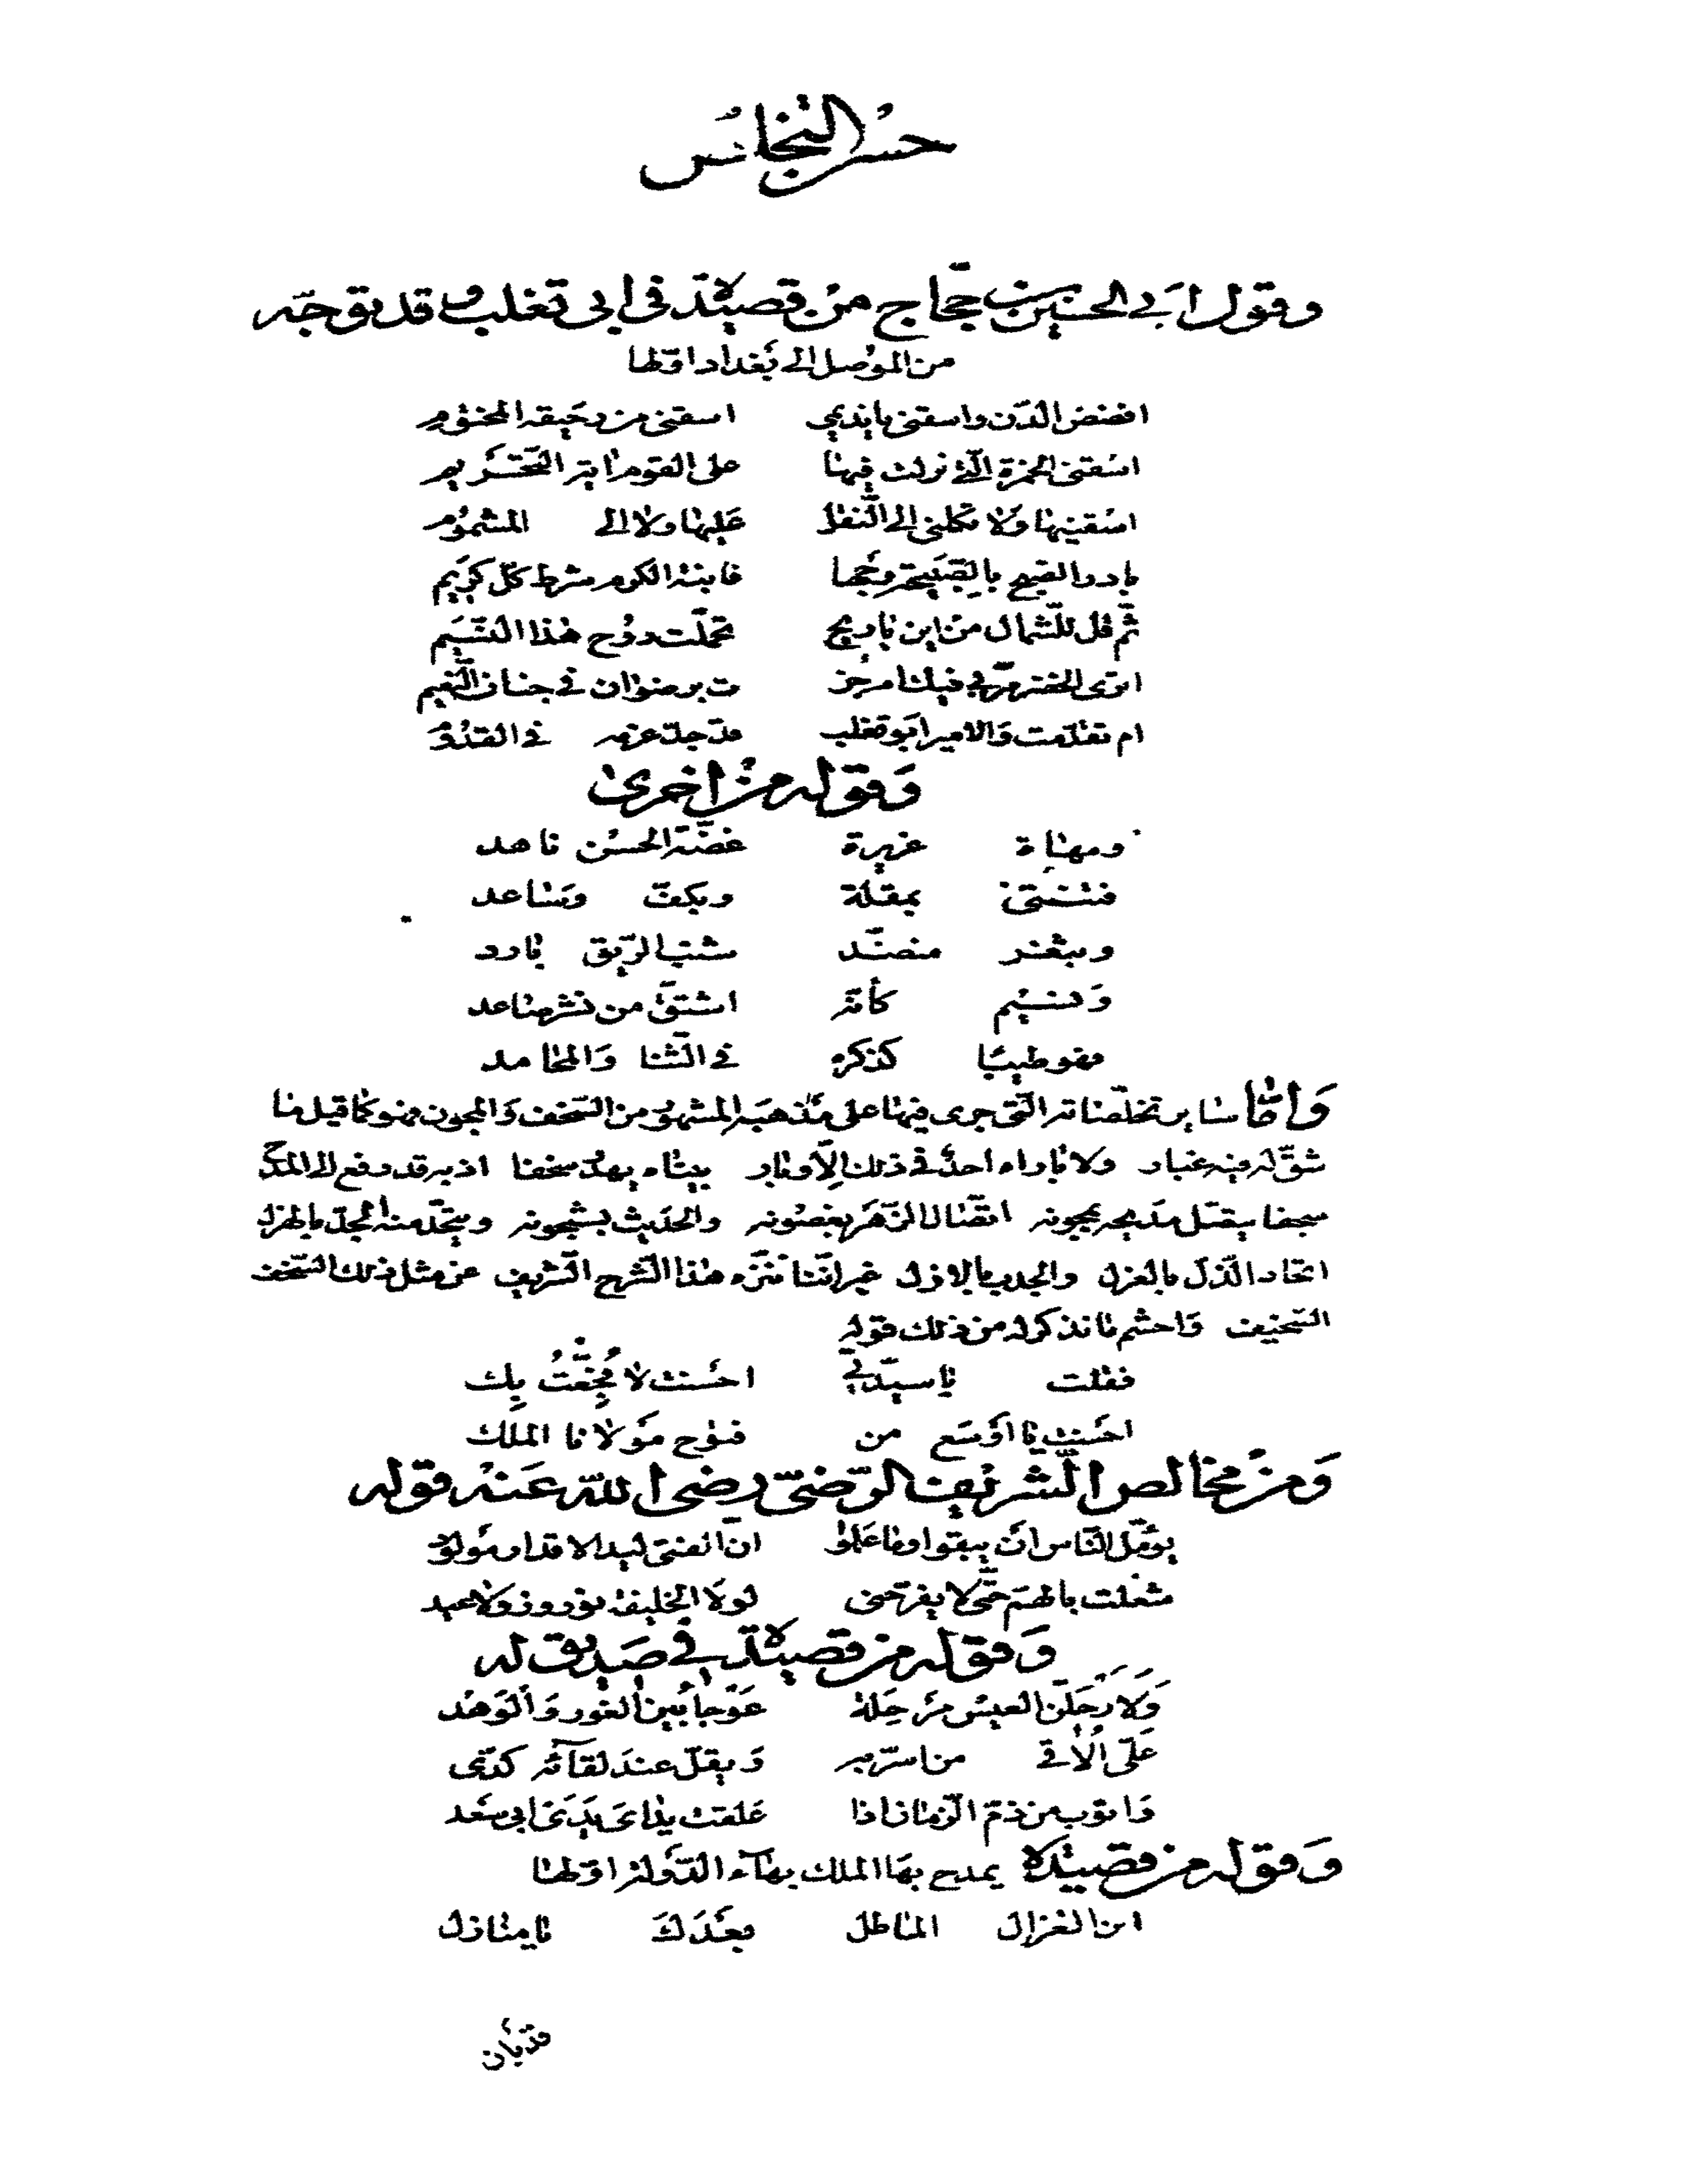 حسن التخلص
وقول ابي الحسين بن حجّاج من قصيدة في ابي تغلب وقد توجّه
من الموصل الى بغداد اوّلها
افضض الدّن واسقني يا نديمي اسقني من رحيقه المختوم
اسقني الخمرة الّتي نزلت فيها على القوم اية التّحريم
اسقنيها ولا تكلني الى النّقل عليها ولا الى المشموم
بادر الصّبح بالصّبيحة وجها فابنة الكرم شرط كلّ كريم
ثمّ قل للشّمال من اين يا ريح تحمّلت روح هذا النّسيم
اترى الخضر مرّ لي فيك ام جز ت برضوان في جنان النّعيم
ام تقدّمت والامير ابو تغلب قد جدّ عزمه في القدوم
وقوله من اخرى
ومهاة غريرة غضّة الحسن ناهد
فتنتني بمقلة وبكفّ وساعد
وبثغر منضّد شنب الرّيق بارد
ونسيم كأنّه اشتقّ من نشر صاعد
فهو طيبا كذكره في الثّنا والمحامد
وامّا ساير تخلّصاته الّتي جرى فيها على مذهبه المشهور من السّخف والمجون فهو كما قيل ما
شقّ له فيه غبار ولا باراه احد في ذلك الّا وبار بيناه يهدّ سخفا اذ به قد رفع الى المدح
سجفا يتصل مديحه بمجونه اتّصال الزّهر بغصونه والحديث بشجونه ويتّحد منه الجدّ بالهزل
اتحاد الذّل بالعزل والجدب بالازل غير انّنا ننزّه هذا الشّرح الشّريف عن مثل ذلك السّخف
السّخيف واحشم ما نذكر له من ذلك قوله
فقلت يا سيّدتي احسنت لا فجّعت بك
احسنت يا اوسع من فتوح مولانا الملك
ومن مخالص الشّريف الرّضيّ رضي اللّه عنه قوله
يؤمّل النّاس ان يبقوا وما علموا انّ الفتى ليد الاقدار مولود
شغلت بالهمّ حتّى لا يفرّحني لولا الخليفة نوروز ولا عيد
وقوله من قصيدة في صديق له
ولارحلنّ العيس مرحلة عوجا بين الغور والوهد
علّي الاقي من اسرّ به ويقلّ عند لقائه كدّي
واتوب من ذمّ الزّمان اذا علقت يداي يدي ابي سعد
وقوله من قصيدة يمدح بها الملك بهآء الدّولة اوّلها
اين الغزال الماطل بعدك يا منازل
قد بان